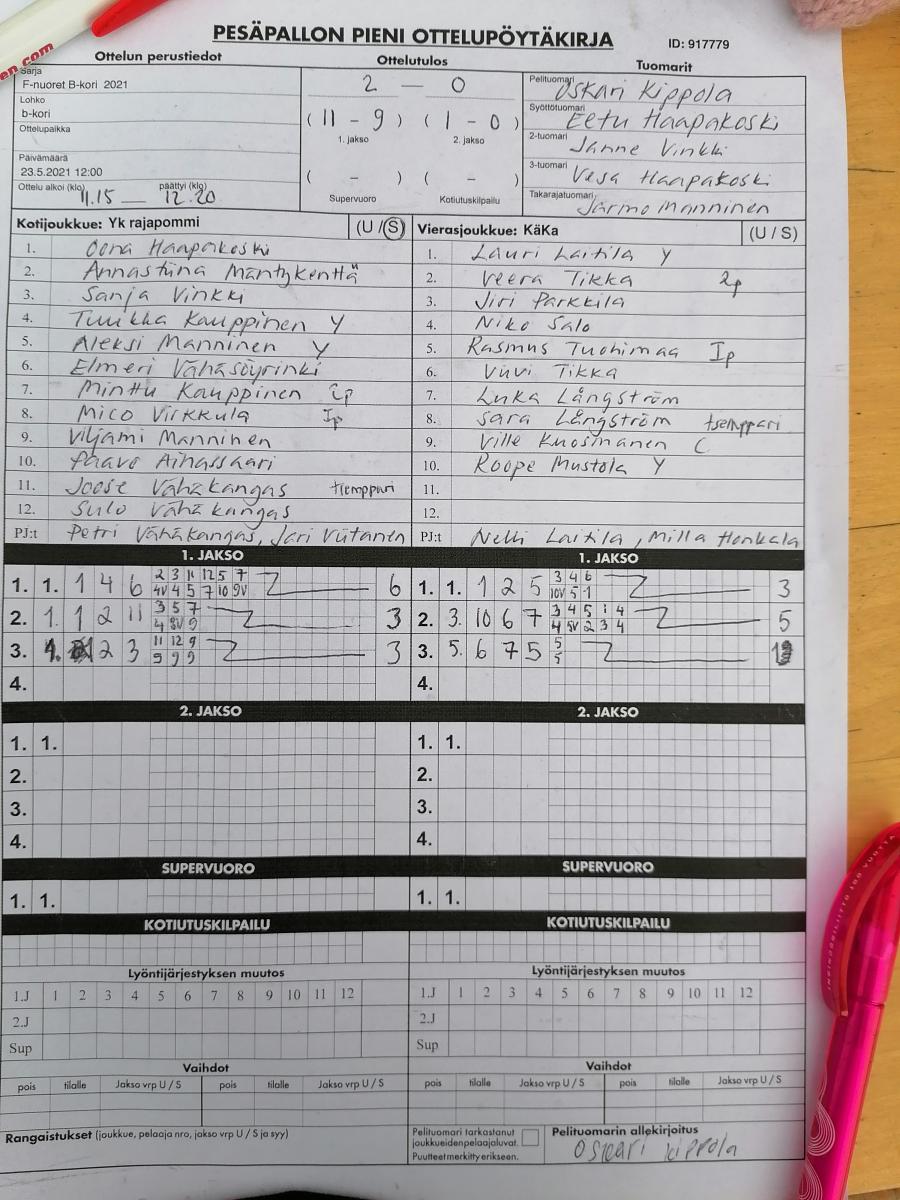 en.com
PESÄPALLON PIENI OTTELUPÖYTÄKIRJA
ID: 917779
Ottelun perustiedot
Sarja
F-nuoret B-kori 2021
Lohko
b-kori
Ottelupaikka
Päivämäärä
23.5.2021 12:00
Ottelu alkoi (klo) 11.15 päättyi (klo) 12.20
Ottelutulos
2 — 0
(11 - 9) (1 - 0)
1. jakso 2. jakso
( - ) ( - )
Supervuoro Kotiutuskilpailu
Tuomarit
Pelituomari Oskari Kippola
Syöttötuomari Eetu Haapakoski
2-tuomari Janne Vinkki
3-tuomari Vesa Haapakoski
Takarajatuomari Jarmo Manninen
Kotijoukkue: Yk rajapommi (U / S)
1. Oona Haapakoski
2. Annastiina Mäntykenttä
3. Sanja Vinkki
4. Tuukka Kauppinen Y
5. Aleksi Manninen Y
6. Elmeri Vähäsöyrinki
7. Minttu Kauppinen 2p
8. Mico Virkkula Ip
9. Viljami Manninen
10. Paavo Aihassaari
11. Joose Vähäkangas tsemppari
12. Sulo Vähäkangas
PJ:t Petri Vähäkangas, Jari Viitanen
Vierasjoukkue: KäKa (U / S)
1. Lauri Laitila Y
2. Veera Tikka 2p
3. Jiri Parkkila
4. Niko Salo
5. Rasmus Tuohimaa Ip
6. Vuvi Tikka
7. Luka Långström
8. Sara Långström tsemppari
9. Ville Kuosmanen C
10. Roope Mustola Y
11.
12.
PJ:t Nelli Laitila, Milla Honkala
1. JAKSO
1. 1. 1 4 6 2 3 11 12 5 7 6
4V 4 5 7 10 9V
2. 1. 1 2 11 3 5 7 3
4 8V 9
3. 1. 2 3 11 12 9 3
5 9 9
4.
1. JAKSO
1. 1. 1 2 5 3 4 6 3
10V 5 1
2. 3. 10 6 7 3 4 5 1 4 5
4 5V 2 3 4
3. 5. 6 7 5 5 1
5
4.
2. JAKSO
1. 1.
2.
3.
4.
2. JAKSO
1. 1.
2.
3.
4.
SUPERVUORO
1. 1.
SUPERVUORO
1. 1.
KOTIUTUSKILPAILU
KOTIUTUSKILPAILU
Lyöntijärjestyksen muutos
1.J 1 2 3 4 5 6 7 8 9 10 11 12
2.J
Sup
Lyöntijärjestyksen muutos
1.J 1 2 3 4 5 6 7 8 9 10 11 12
2.J
Sup
Vaihdot
pois tilalle Jakso vrp U / S pois tilalle Jakso vrp U / S
Vaihdot
pois tilalle Jakso vrp U / S pois tilalle Jakso vrp U / S
Rangaistukset (joukkue, pelaaja nro, jakso vrp U / S ja syy)
Pelituomari tarkastanut
joukkueiden pelaajaluvat.
Puutteet merkitty erikseen.
Pelituomarin allekirjoitus
Oskari Kippola